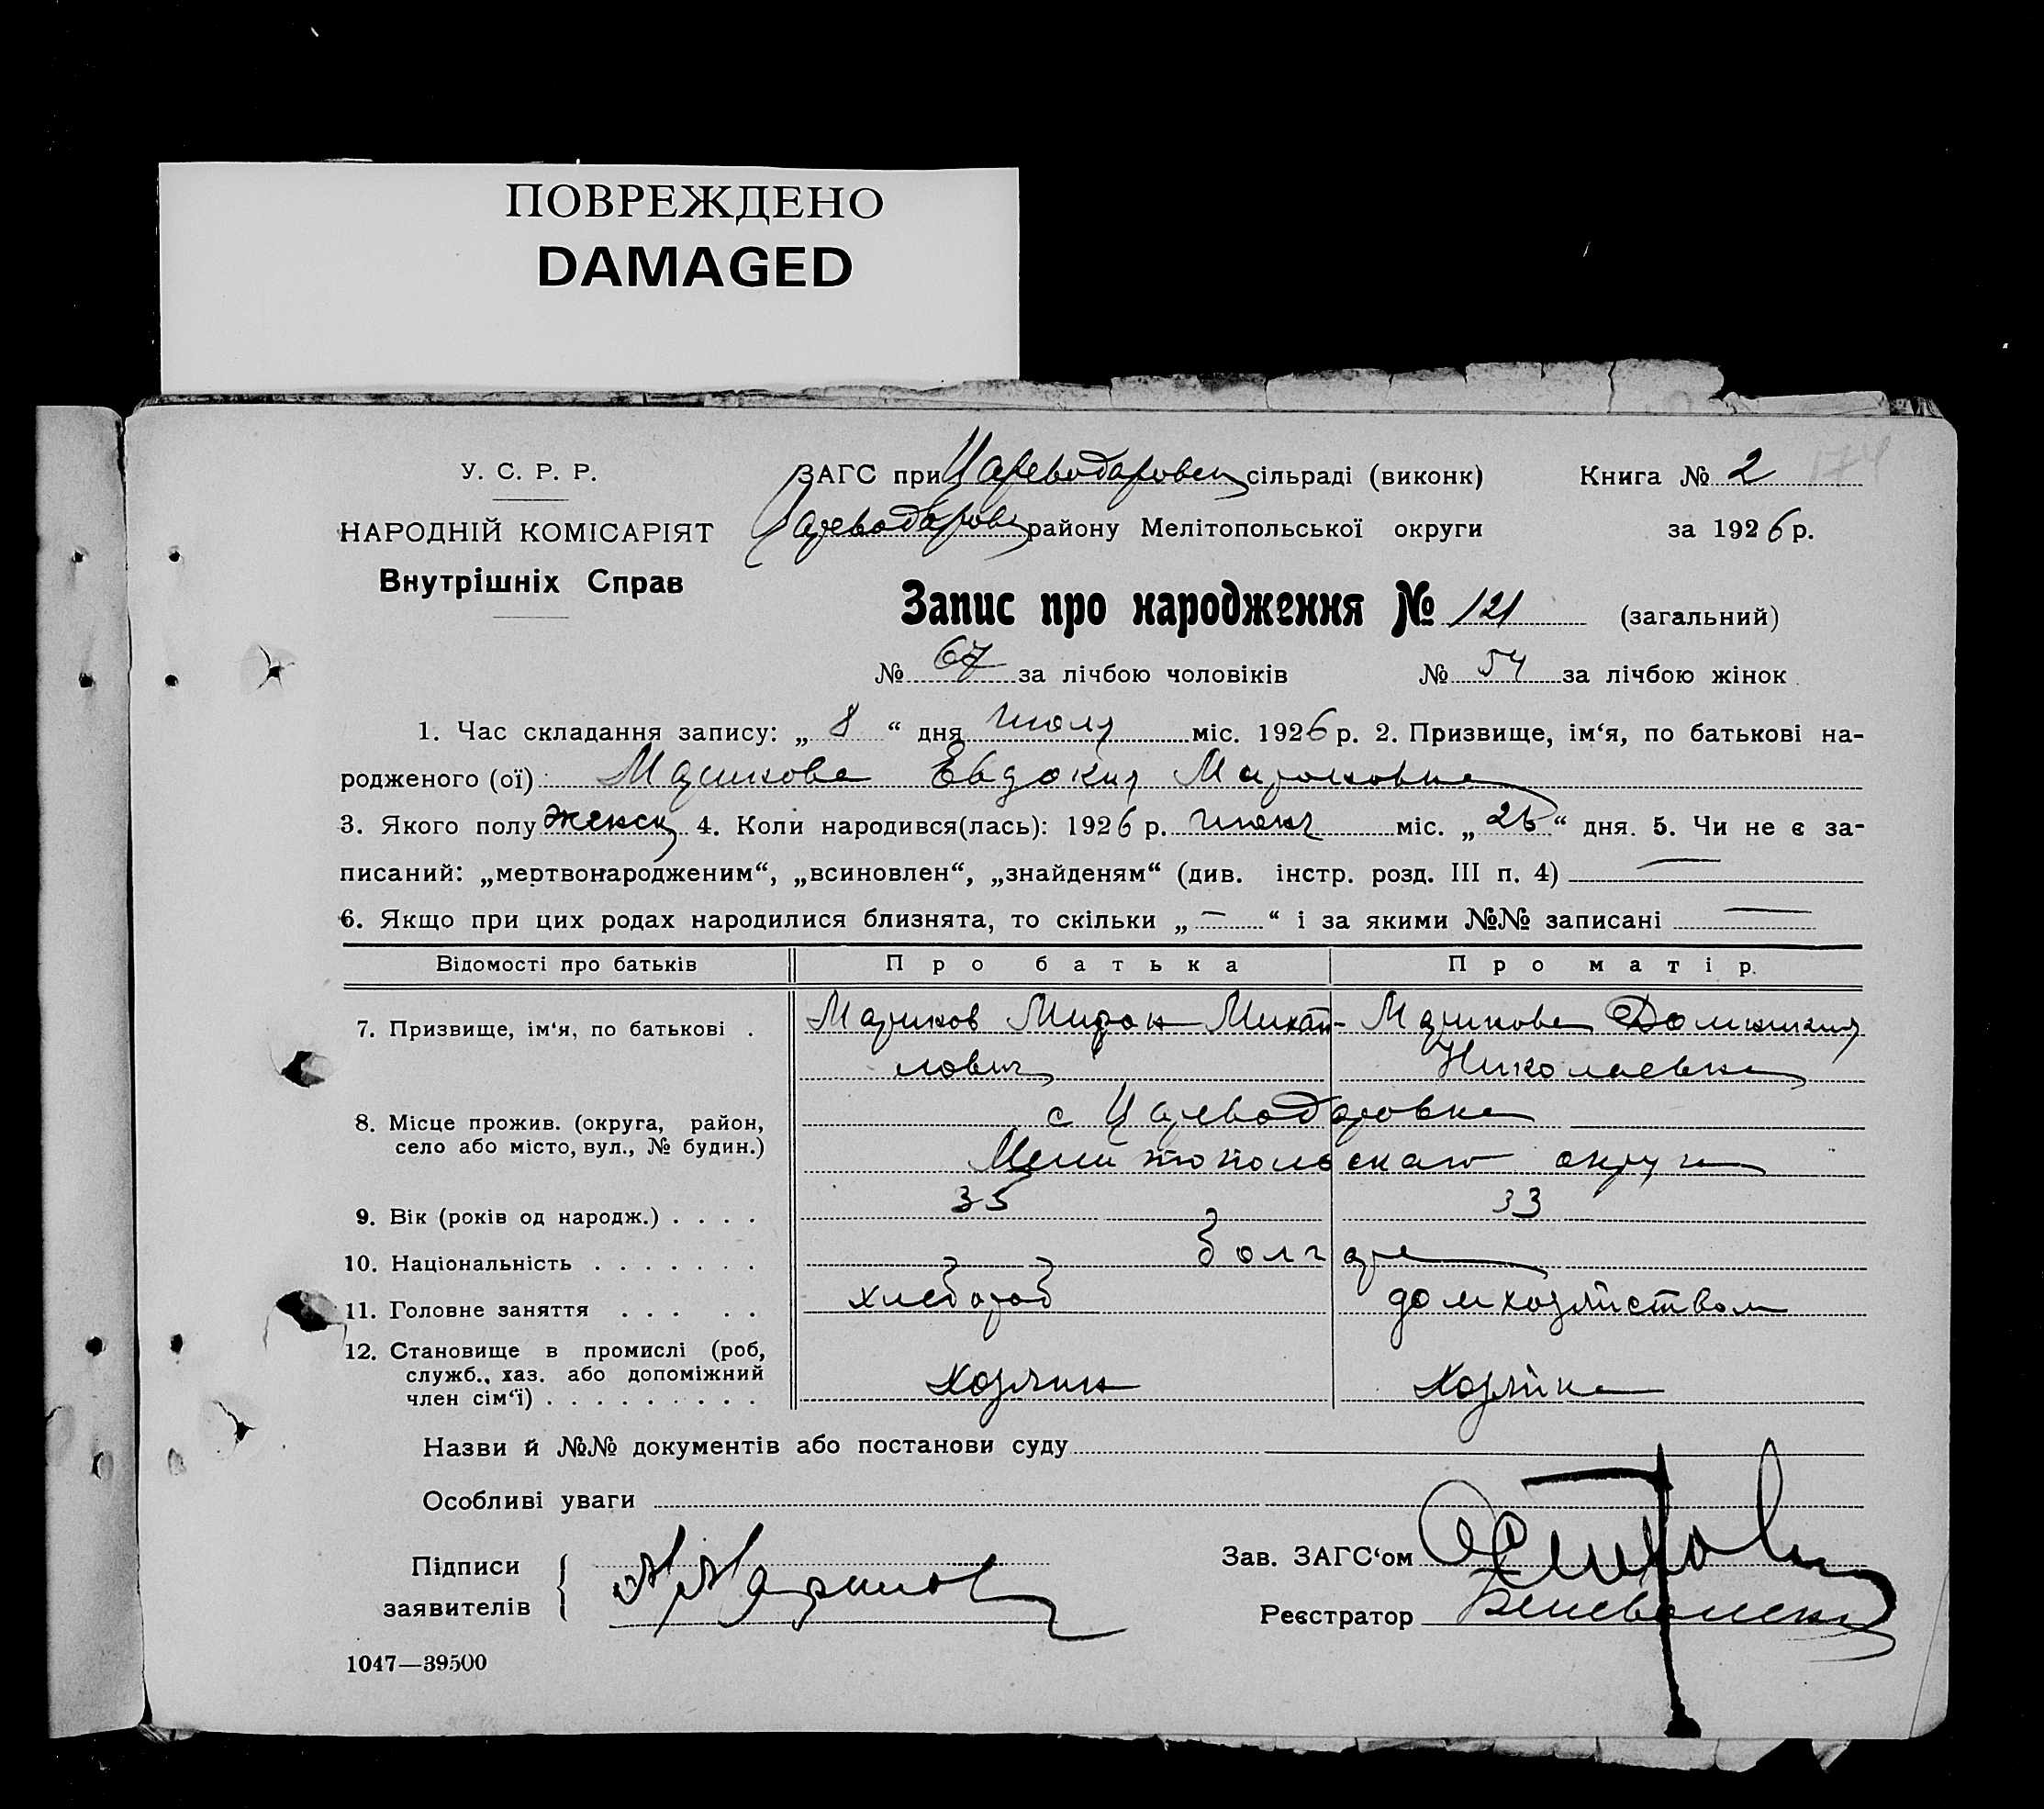 ПОВРЕЖДЕНО
DAMAGED
174
У. С. Р. Р.
НАРОДНІЙ КОМІСАРІЯТ
Внутрішніх Справ
ЗАГС при Царeводаровск сільраді (виконк)
Царeводаровск району Мелітопольської округи
Книга № 2
за 1926 р.
Запис про народження № 121 (загальний)
№ 67 за лічбою чоловіків № 54 за лічбою жінок
1. Час складання запису: „ 8 “ дня июля міс. 1926 р. 2. Призвище, ім‘я, по батькові на-
родженого (ої) Маринова Евдокия Мироновна
3. Якого полу женск 4. Коли народився(лась): 1926 р. июня міс. „ 26 “ дня. 5. Чи не є за-
писаний: „мертвонародженим“, „всиновлен“, „знайденям“ (див. інстр. розд. III п. 4) —
6. Якщо при цих родах народилися близнята, то скільки „ — “ і за якими №№ записані —
Відомості про батьків Про батька Про матір.
7. Призвище, ім‘я, по батькові . Маринов Мирон Михай- Маринова Домникия
лович Николаевна
8. Місце прожив. (округа, район, с Царeводаровка
село або місто, вул., № будин.) Мелитопольскаго округа
9. Вік (років од народж.) . . . . 35 33
10. Національність . . . . . . . болгаре
11. Головне заняття . . . . . хлебороб домхозяйством
12. Становище в промислі (роб,
служб., хаз. або допоміжний хозяин хозяйка
член сім‘ї) . . . . . . . . .
Назви й №№ документів або постанови суду
Особливі уваги
Підписи
заявителів
М Маринов
Зав. ЗАГС‘ом
Реєстратор
1047—39500